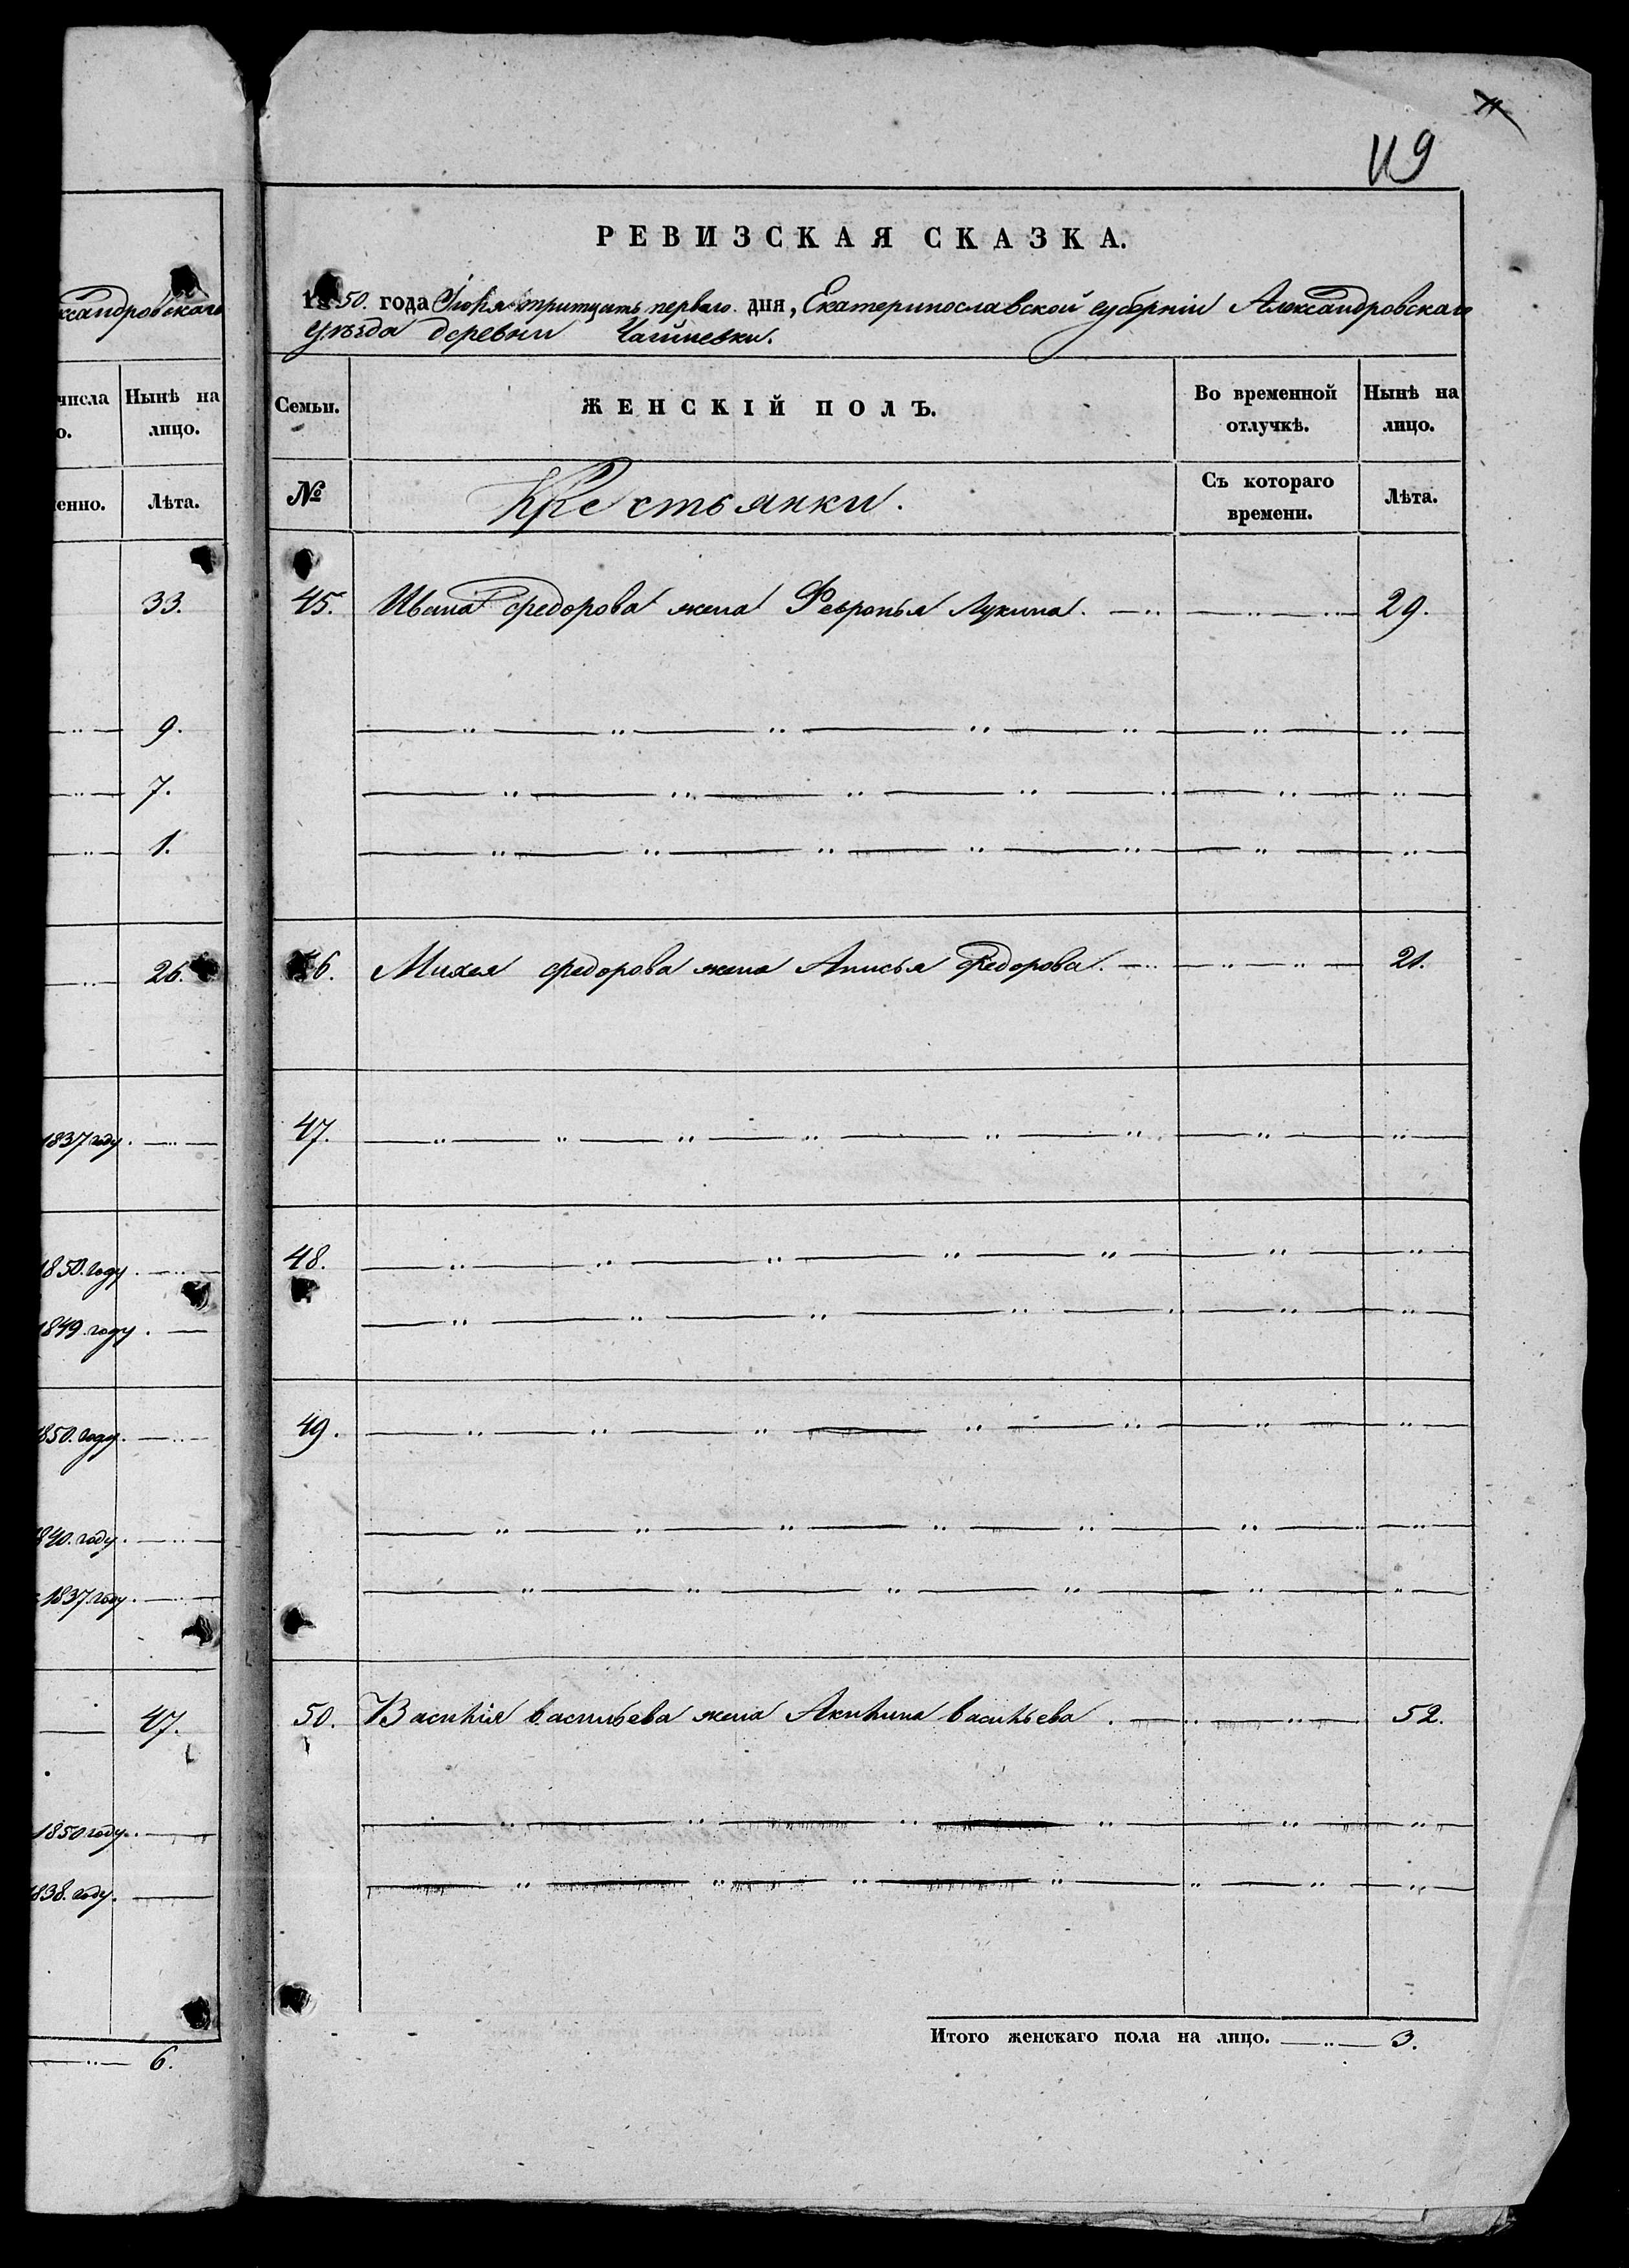 119
РЕВИЗСКАЯ СКАЗКА.
1850. года Іюля тритцать перваго дня, Екатеринославской губерніи Александровскаго
уѣзда деревни
Семьи.
ЖЕНСКІЙ ПОЛЪ.
Во временной отлучкѣ.
Нынѣ на лицо.
№
Крестьянки.
Съ котораго времени.
Лѣта.
45. Ивана Федорова жена Февронья Лукина. 29.
46. Михея Федорова жена Анисья Федорова. 21.
47.
48.
49.
50. Василія Васильева жена Акилина Васильева. 52.
Итого женскаго пола на лицо. 3.
ксандровскаго
числа
о.
Нынѣ на
лицо.
енно.
Лѣта.
33.
9.
7.
1.
26.
1837 году.
1850. году.
1849. году.
1850. году.
1840. году.
1837 году.
47.
1850 году.
1838. году.
6.